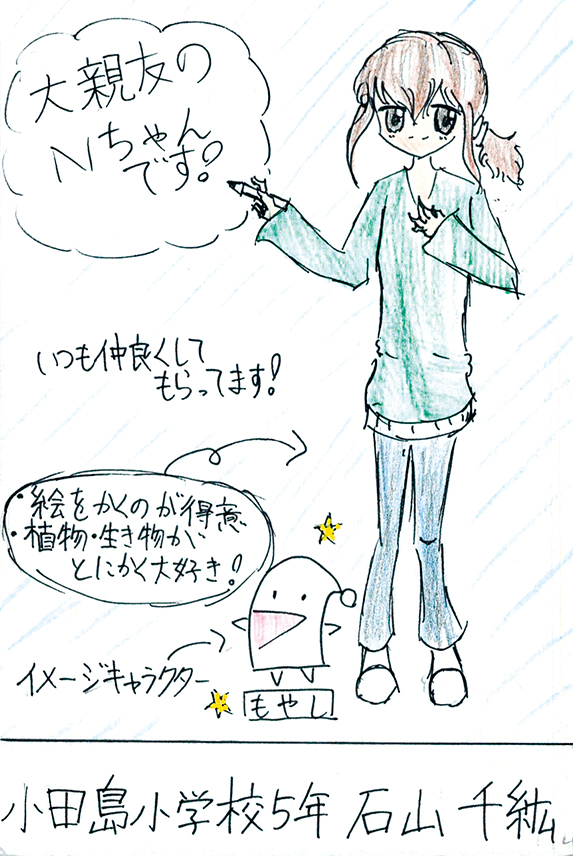 大親友の
Nちゃん
です!
いつも仲良くして
もらってます!
・絵をかくのが得意
・植物・生き物が
とにかく大好き!
イメージキャラクター
もやし
小田島小学校5年 石山 千紘